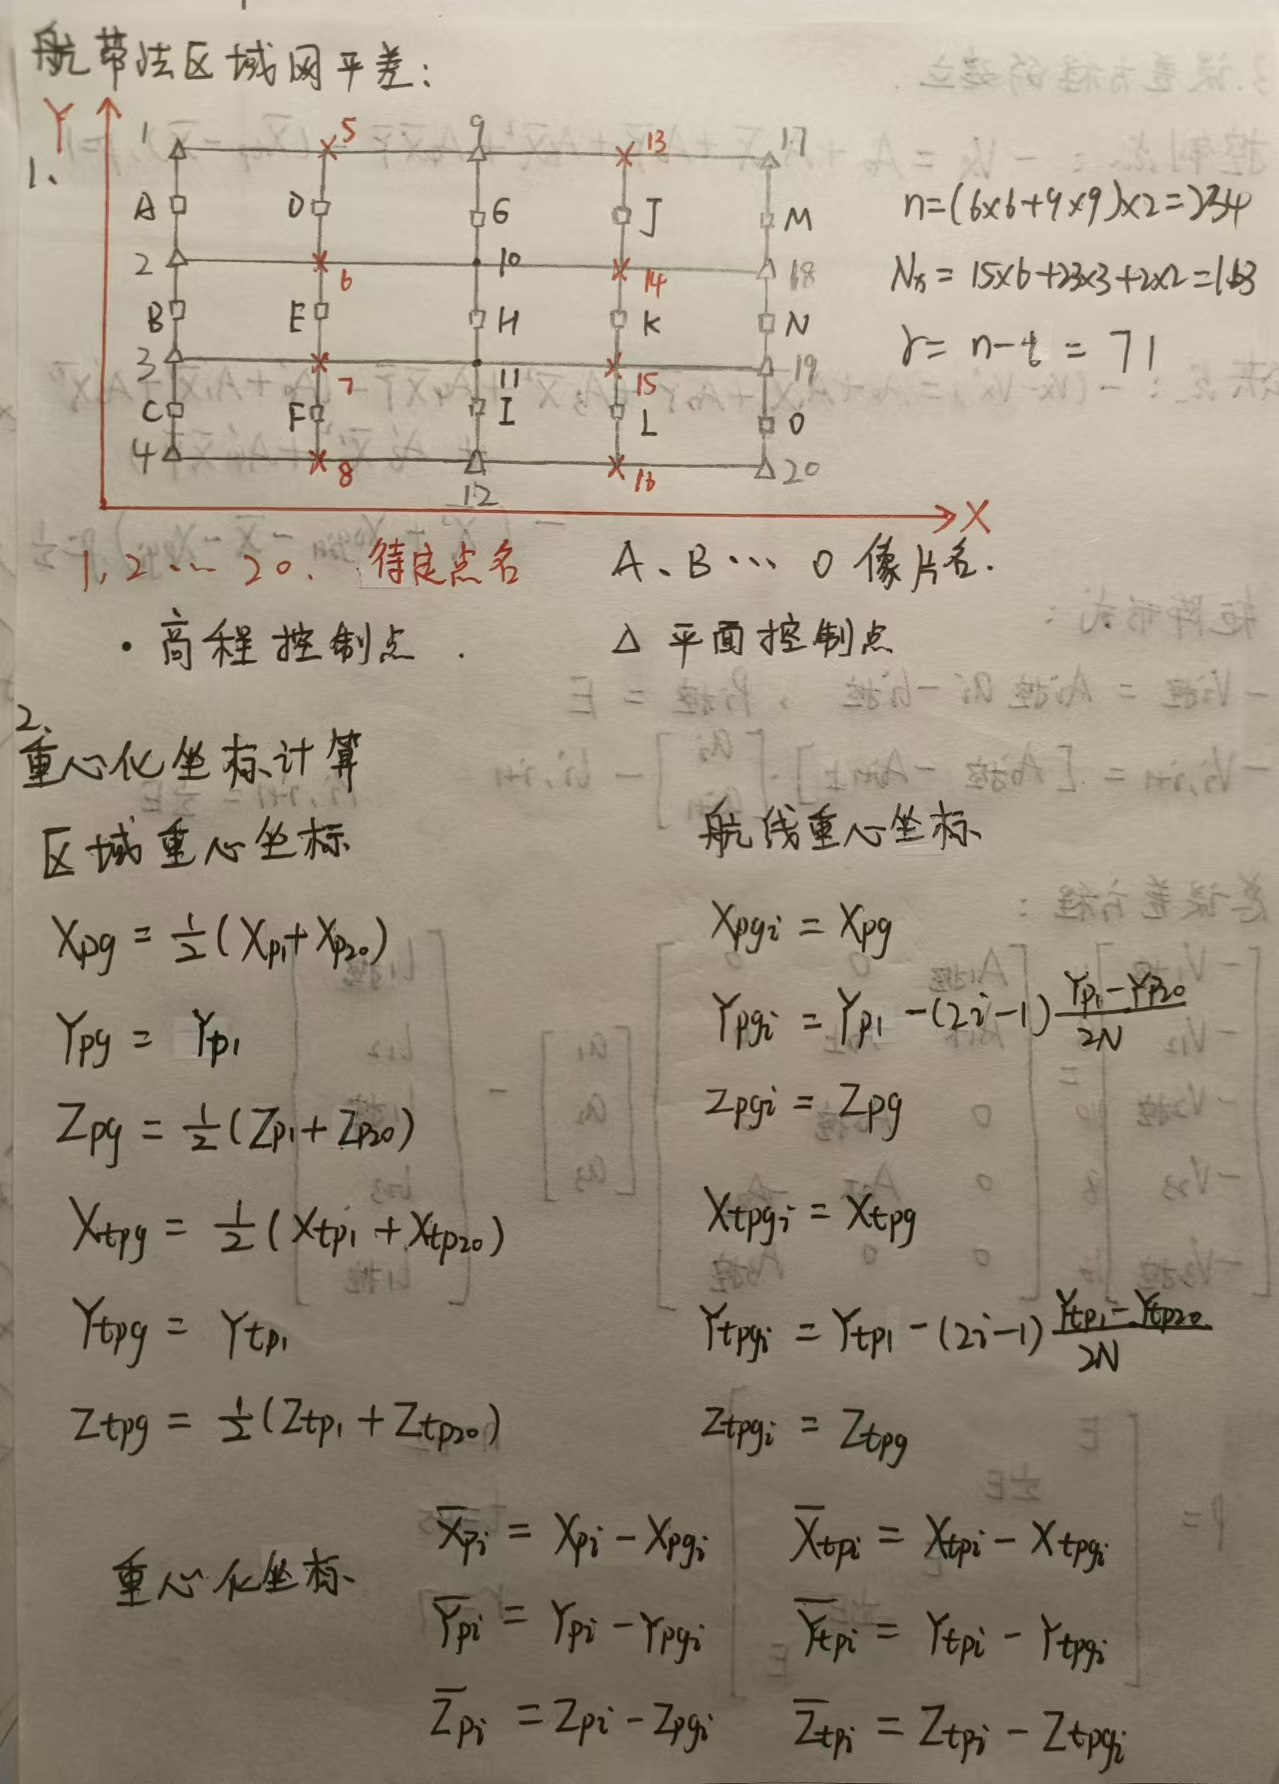 航带法区域网平差:
1、
Y
1 5 9 13 17
A D G J M
2 6 10 14 18
B E H K N
3 7 11 15 19
C F I L O
4 8 12 16 20
X
n=(6×6+9×9)×2=234
Nx = 15×6+23×3+2×2=163
r= n-t = 71
1,2 … 20. 待定点名 A、B … O 像片名.
· 高程控制点. △ 平面控制点
2、
重心化坐标计算
区域重心坐标
Xpg = ½(Xp1+Xp20)
Ypg = Yp1
Zpg = ½(Zp1+Zp20)
Xtpg = ½(Xtp1+Xtp20)
Ytpg = Ytp1
Ztpg = ½(Ztp1+Ztp20)
航线重心坐标
Xpgi = Xpg
Ypgi = Yp1 -(2i-1) (Yp1-Yp20)/2N
Zpgi = Zpg
Xtpgi = Xtpg
Ytpgi = Ytp1 -(2i-1) (Ytp1-Ytp20)/2N
Ztpgi = Ztpg
重心化坐标
X̄pi = Xpi - Xpgi X̄tpi = Xtpi - Xtpgi
Ȳpi = Ypi - Ypgi Ȳtpi = Ytpi - Ytpgi
Z̄pi = Zpi - Zpgi Z̄tpi = Ztpi - Ztpgi